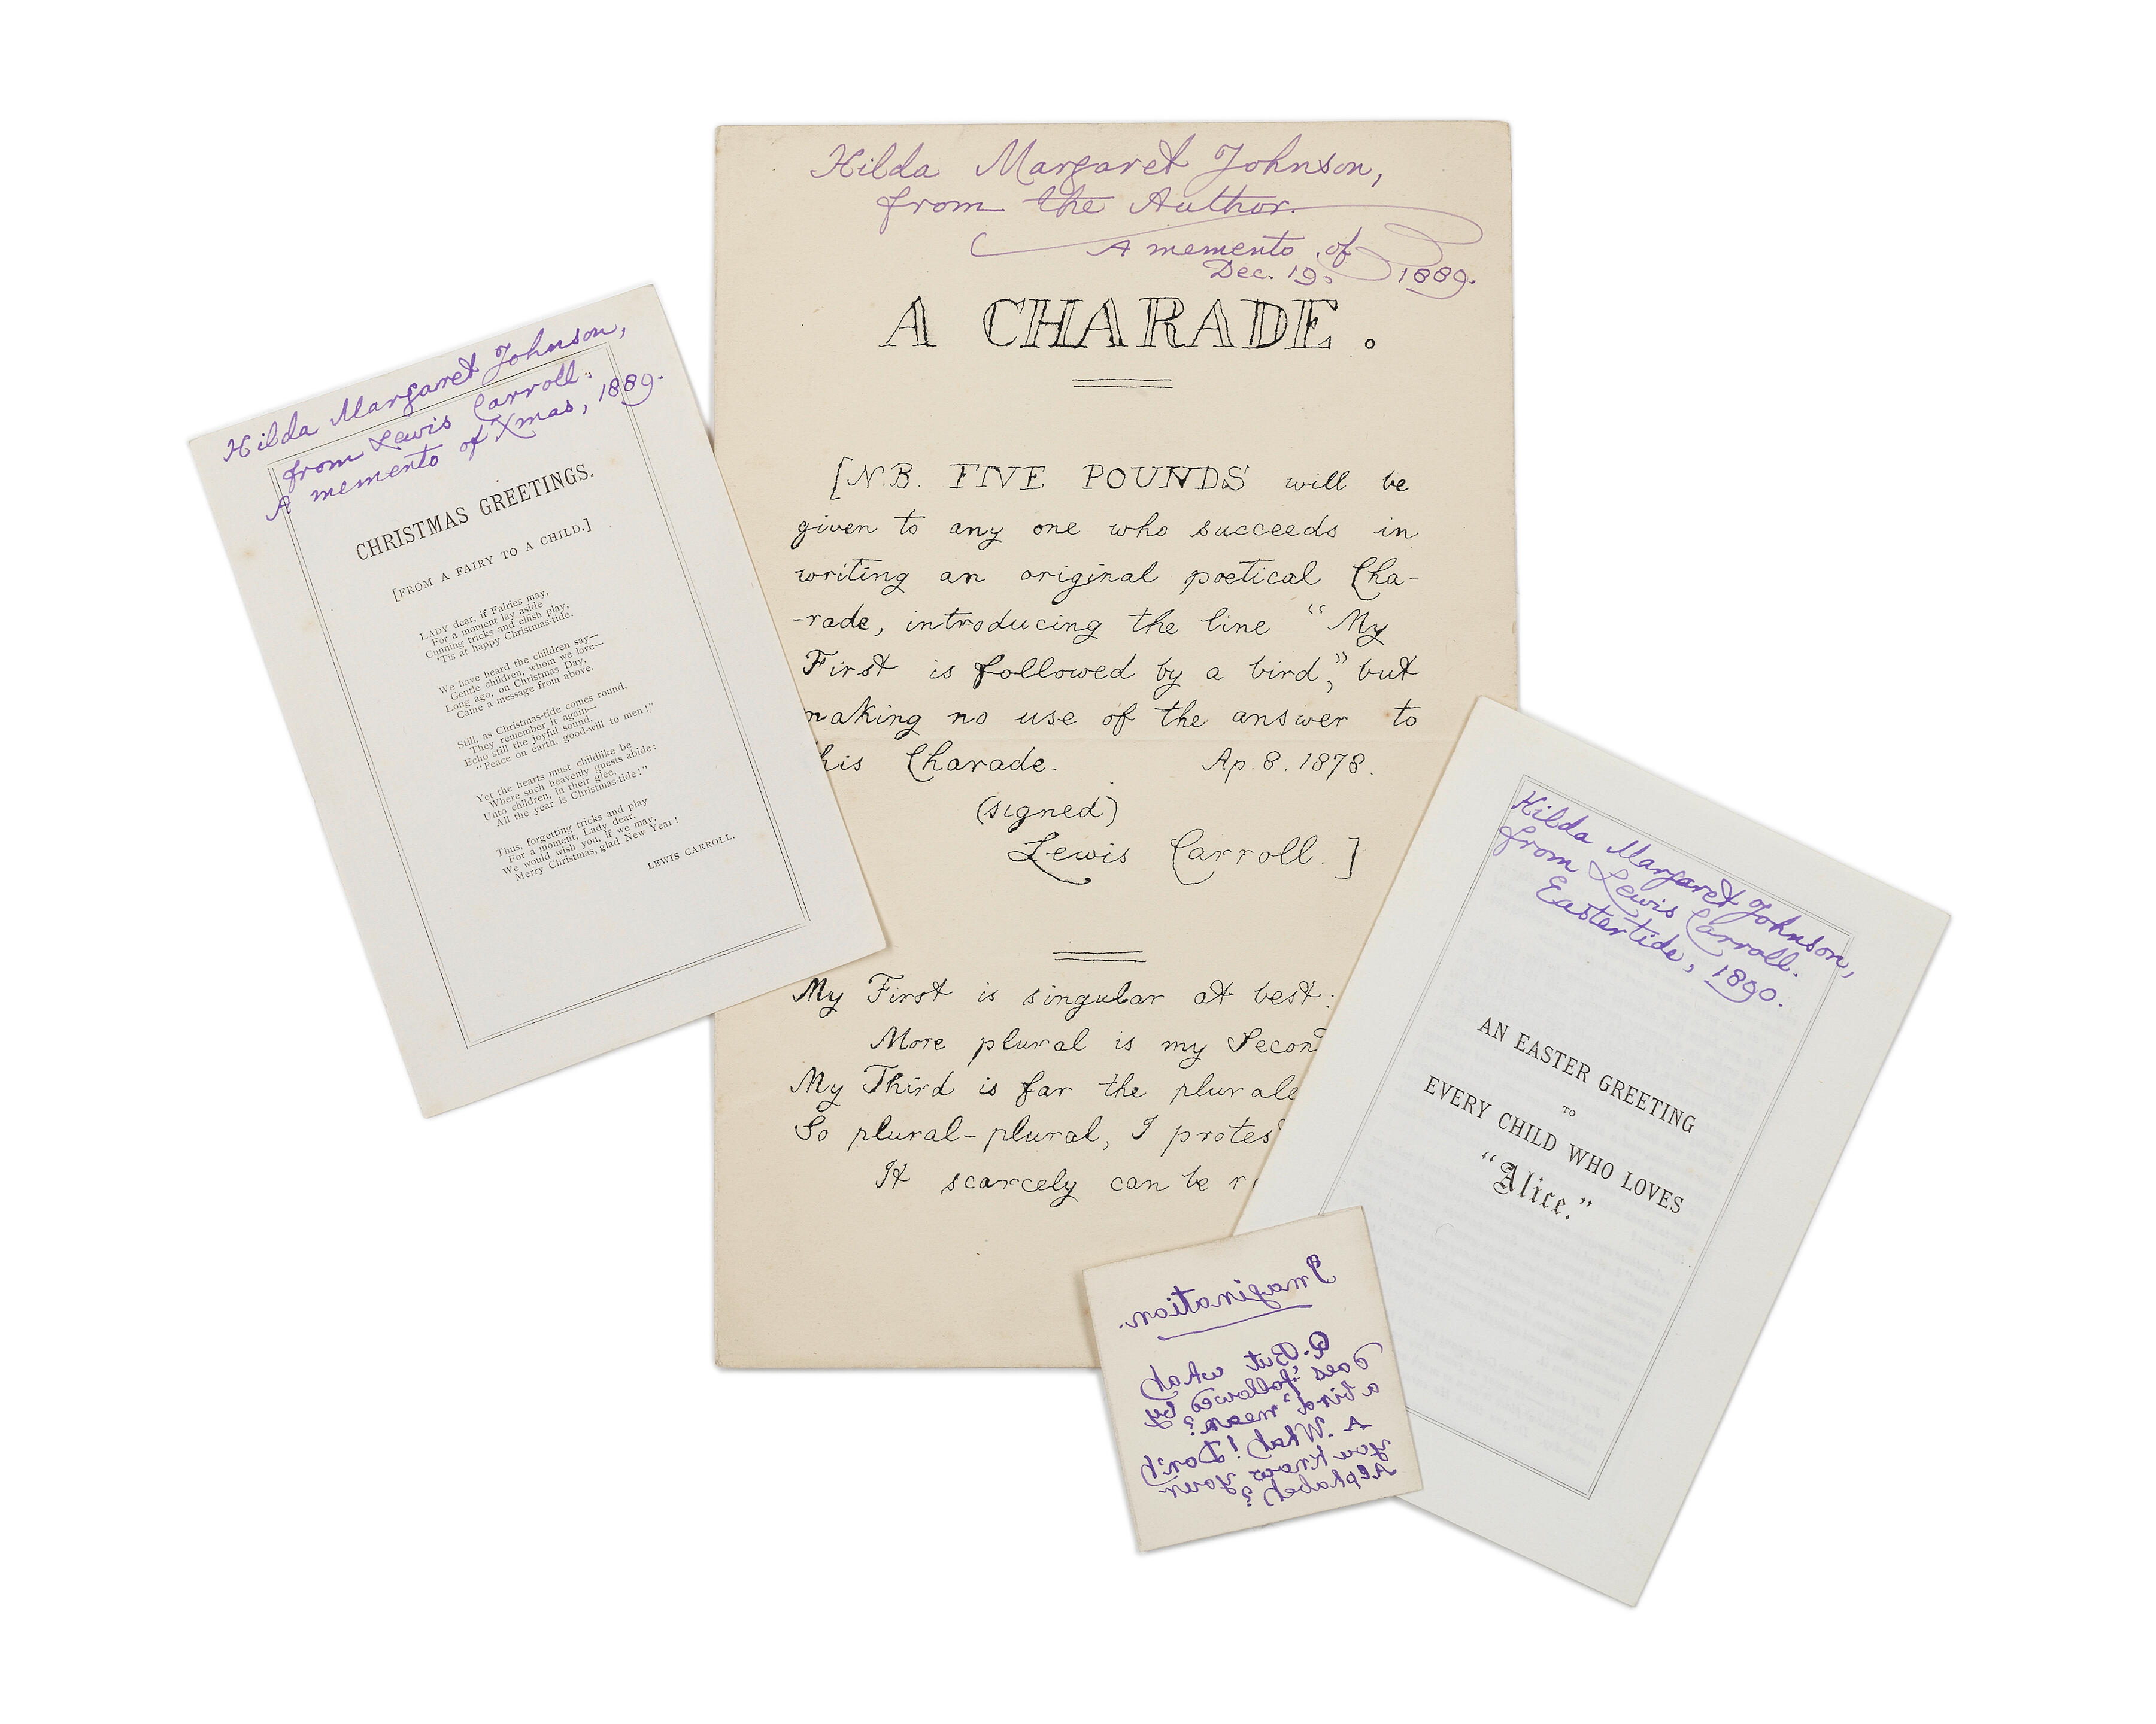 Hilda Margaret Johnson,
from the Author.
A memento of
Dec. 19, 1889.
A CHARADE.
[N.B. FIVE POUNDS will be
given to any one who succeeds in
writing an original poetical Cha-
-rade, introducing the line "My
First is followed by a bird," but
making no use of the answer to
his Charade. Ap. 8. 1878.
(signed)
Lewis Carroll.]
My First is singular at best:
More plural is my Secon
My Third is far the plurale
So plural-plural, I protes
It scarcely can be r
Hilda Margaret Johnson,
from Lewis Carroll.
A memento of Xmas, 1889.
CHRISTMAS GREETINGS.
[FROM A FAIRY TO A CHILD.]
LADY dear, if Fairies may,
For a moment lay aside
Cunning tricks and elfish play,
'Tis at happy Christmas-tide.
We have heard the children say—
Gentle children, whom we love—
Long ago, on Christmas Day,
Came a message from above.
Still, as Christmas-tide comes round,
They remember it again—
Echo still the joyful sound,
"Peace on earth, good-will to men!"
Yet the hearts must childlike be
Where such heavenly guests abide:
Unto children, in their glee,
All the year is Christmas-tide!"
Thus, forgetting tricks and play
For a moment, Lady dear,
We would wish you, if we may,
Merry Christmas, glad New Year!
LEWIS CARROLL.
Hilda Margaret Johnson,
from Lewis Carroll.
Eastertide, 1890.
AN EASTER GREETING
TO
EVERY CHILD WHO LOVES
"Alice."
Imagination.
Q. But what
does "followed by
a bird" mean?
A. What! Don't
you know your
Alphabet?